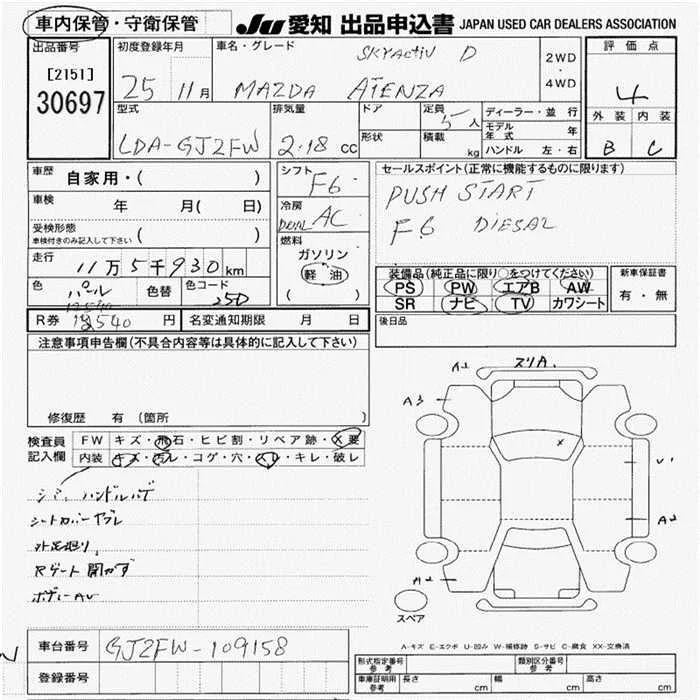 車内保管・守衛保管 JU 愛知 出品申込書 JAPAN USED CAR DEALERS ASSOCIATION
出品番号 初度登録年月 車名・グレード SKYACTIV D 2WD・4WD 評価点
[2151] 25 11月 MAZDA ATENZA 4
30697
型式 排気量 ドア 定員 5人 ディーラー・並行 外装 内装
LDA-GJ2FW 2.18 cc 形状 積載 kg モデル年式 年 B C
ハンドル 左・右
車歴 自家用・( ) シフト F6 セールスポイント(正常に機能するものに限ります)
車検 年 月( 日) 冷房 AC PUSH START
受検形態 ( ) F6 DIESAL
車検付きのみ記入して下さい 燃料
走行 11万5千930km ガソリン
軽油
( )
色 パール 色替 色コード 25D
装備品(純正品に限り○をつけてください) 新車保証書
PS PW エアB AW 有・無
SR ナビ TV カワシート
R券 12540 円 名変通知期限 月 日 後日品
注意事項申告欄(不具合内容等は具体的に記入して下さい)
修復歴 有 (箇所 )
検査員記入欄 FW キズ・飛石・ヒビ割・リペア跡・X要
内装 キズ・汚レ・コゲ・穴・スレ・キレ・破レ
シートカバーヤブレ
Rゲート開かず
ボデーAU
A1 スリA.
A3
x
U1
A2
A2
スペア
A-キズ E-エクボ U-凹み W-補修跡 S-サビ C-腐食 XX-交換済
車台番号 GJ2FW-109158
登録番号
形式指定番号 参考 類別区分番号 参考
車庫証明用 参考 長さ cm 幅 cm 高さ cm